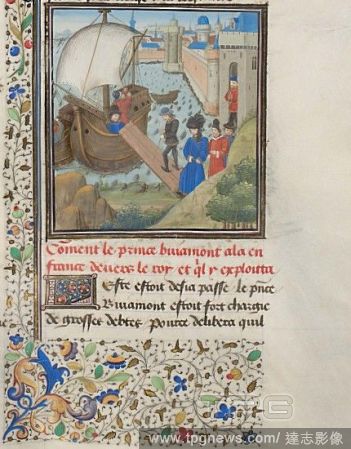 Coment le prince buiamont ala en
france devers le roy et ql y exploitta
Este estoit desia passe le pnce
Buiamont estoit fort chargie
de grosses debtes Pource delibera quil
www.tpgnews.com/ 達志影像